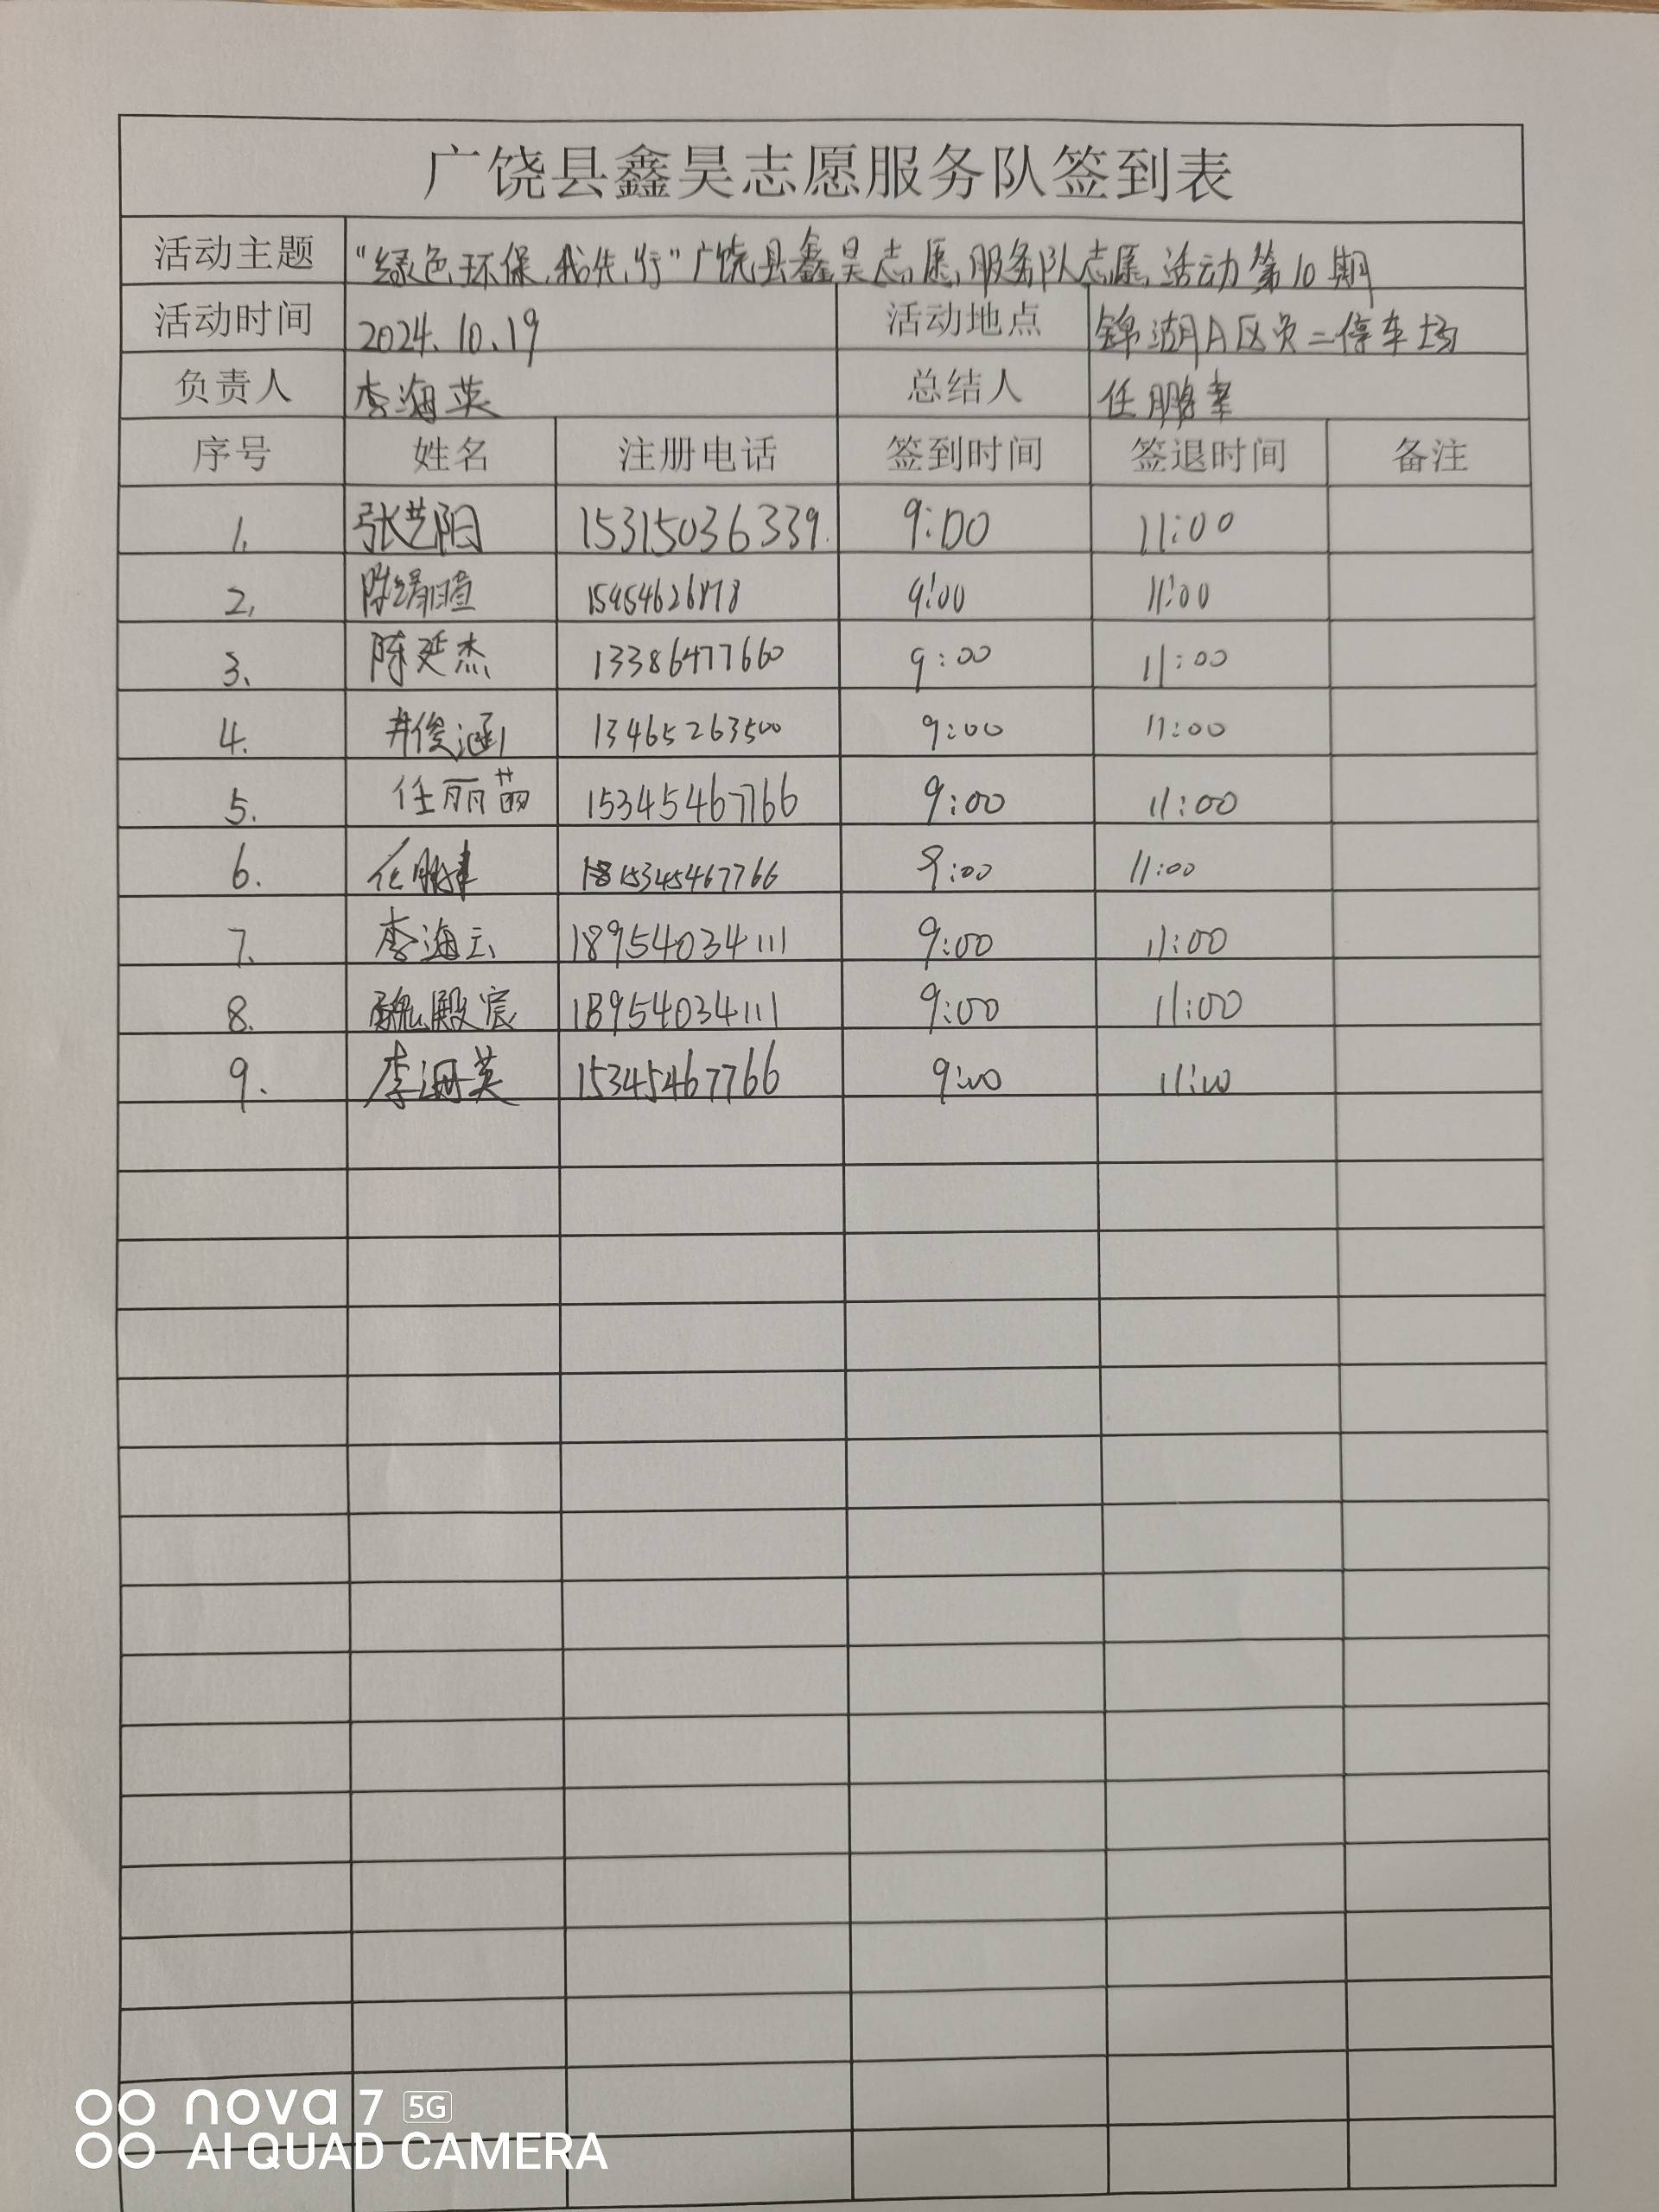 广饶县鑫昊志愿服务队签到表
活动主题 "绿色环保,我先行"广饶县鑫昊志愿服务队志愿活动第10期
活动时间 2024.10.19 活动地点 锦湖A区负二停车场
负责人 李海英 总结人 任鹏
序号 姓名 注册电话 签到时间 签退时间 备注
1. 张艺阳 15315036339. 9:00 11:00
2. 陈 9:00 11:00
3. 陈延杰 13386477660 9:00 11:00
4. 井俊涵 13465263500 9:00 11:00
5. 任丽茵 15345467766 9:00 11:00
6. 任鹏 15345467766 9:00 11:00
7. 李海云 18954034111 9:00 11:00
8. 魏殿宸 18954034111 9:00 11:00
9. 李海英 15345467766 9:00 11:00
nova 7 5G
AI QUAD CAMERA